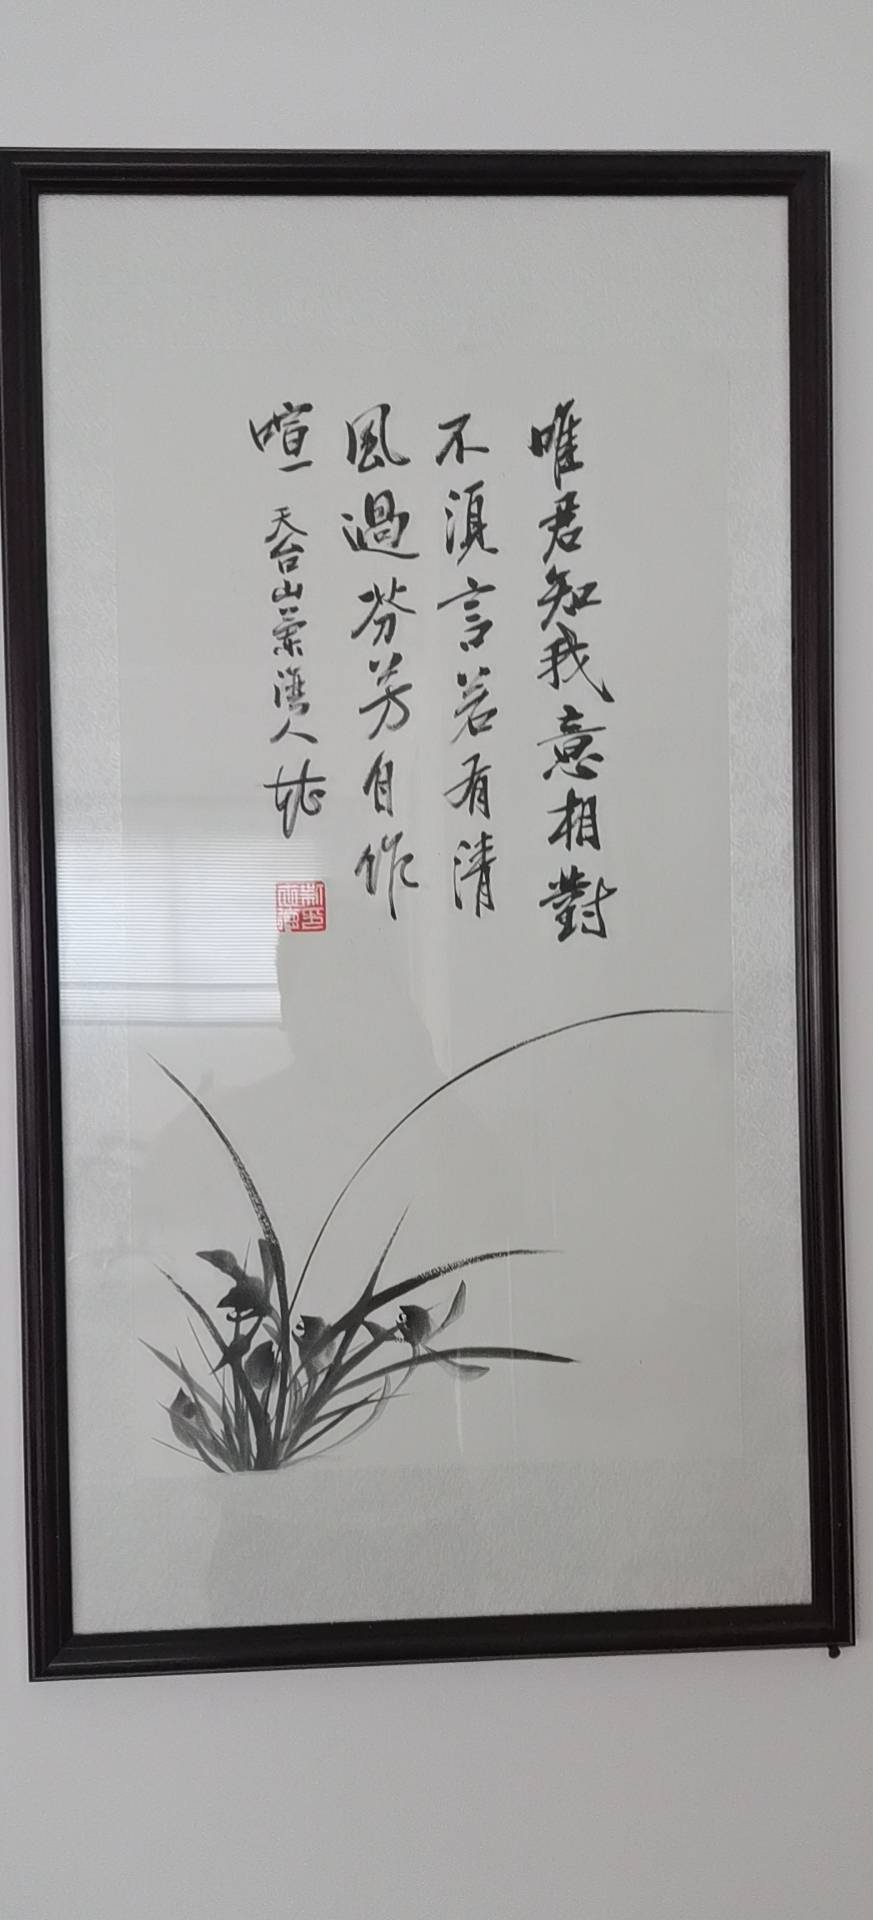 唯君知我意相對
不須言若有清
風過芬芳自作
喧 天台山蘭灣人